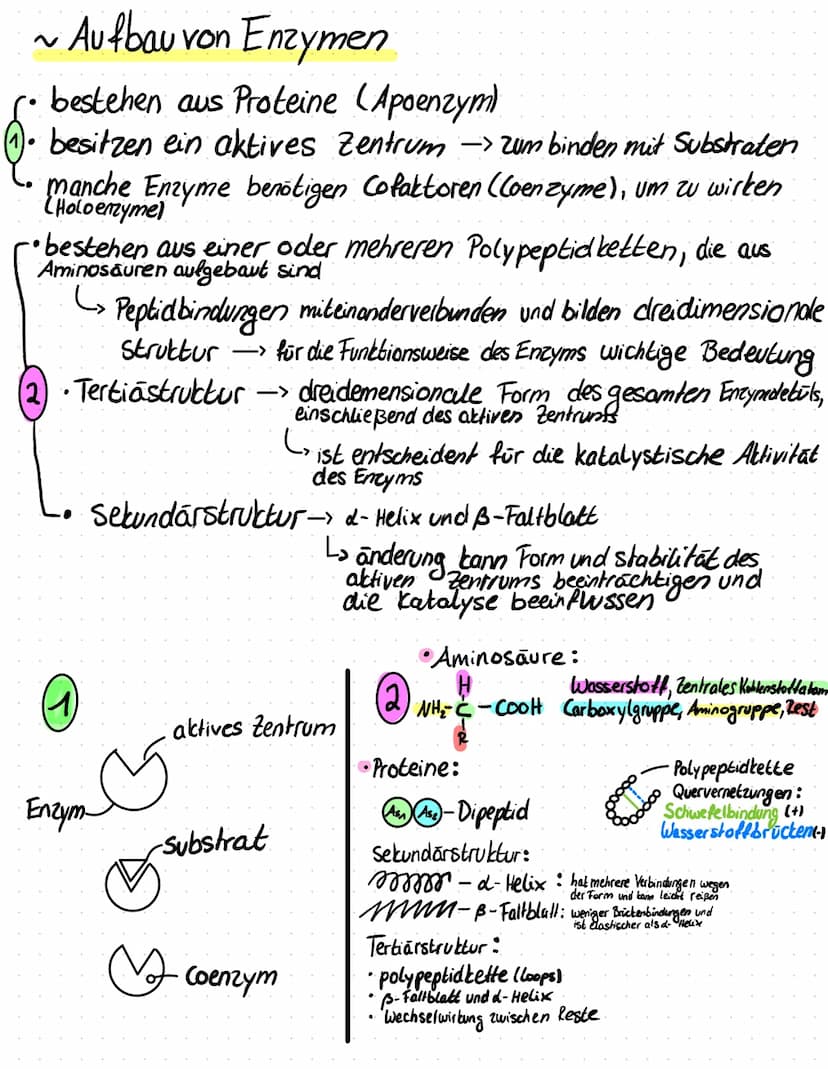 ~ Aufbau von Enzymen
• bestehen aus Proteine (Apoenzym)
1 • besitzen ein aktives Zentrum → zum binden mit Substraten
• manche Enzyme benötigen Cofaktoren (Coenzyme), um zu wirken
(Holoenzyme)
• bestehen aus einer oder mehreren Polypeptidketten, die aus
Aminosäuren aufgebaut sind
↳ Peptidbindungen miteinanderverbunden und bilden dreidimensionale
Struktur → für die Funktionsweise des Enzyms wichtige Bedeutung
2 • Tertiästruktur → dreidemensionale Form des gesamten
einschließend des aktiven Zentrums
↳ ist entscheident für die katalystische Aktivität
des Enzyms
• Sekundärstruktur → α-Helix und β-Faltblatt
↳ änderung kann Form und stabilität des
aktiven Zentrums beeinträchtigen und
die Katalyse beeinflussen
1
aktives Zentrum
Enzym
Substrat
Coenzym
2
• Aminosäure:
H
NH₂-C-COOH
R
Wasserstoff, Zentrales Kohlenstoffatom
Carboxylgruppe, Aminogruppe, Rest
• Proteine:
Polypeptidkette
Quervernetzungen:
Schwefelbindung (+)
Wasserstoffbrücken(-)
Asn - Dipeptid
Sekundärstruktur:
- α-Helix : hat mehrere Verbindungen wegen
der Form und kann leicht reißen
- β-Faltblatt: weniger Brückenbindungen und
ist elastischer als α-Helix
Tertiärstruktur:
• polypeptidkette (Loops)
• β-Faltblatt und α-Helix
• Wechselwirkung zwischen Reste